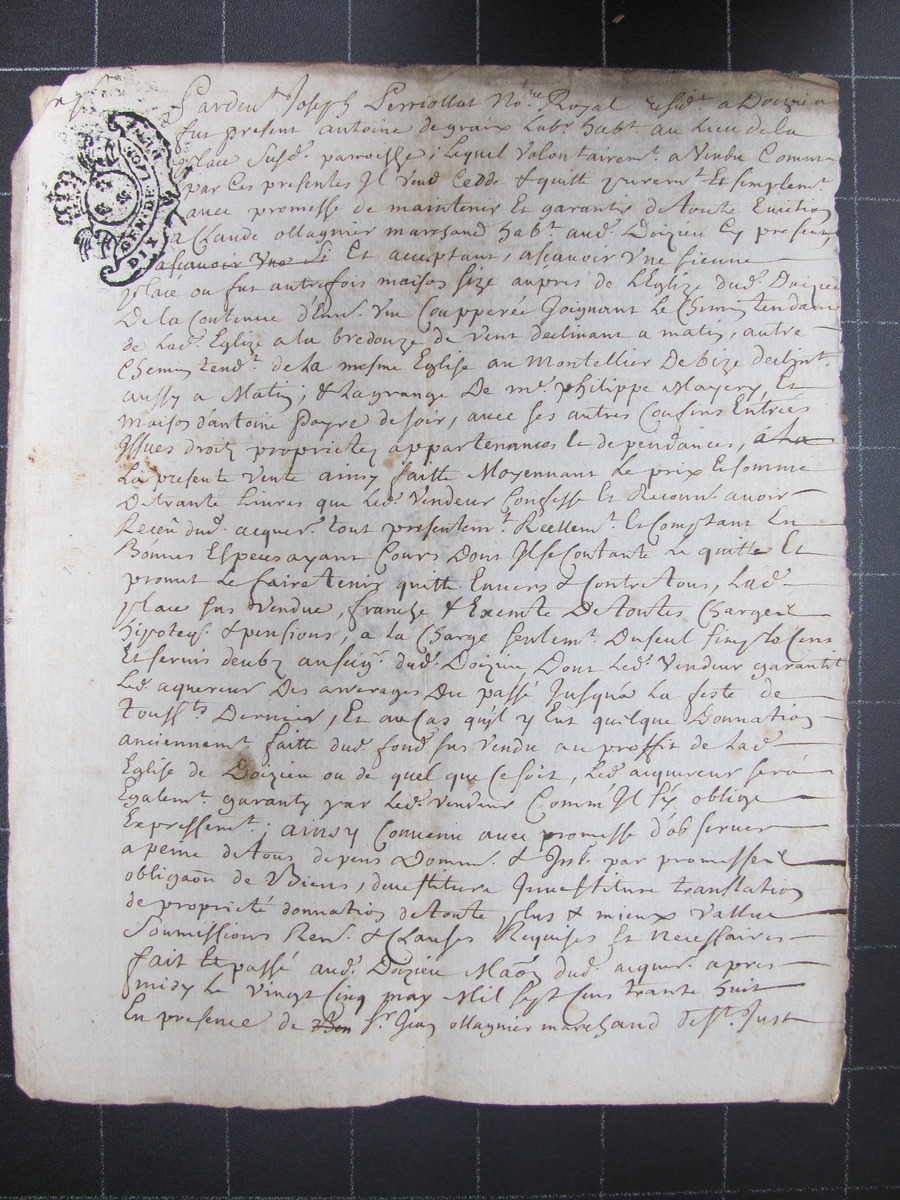 Pardevt Joseph Perriollat Nore Royal residt a Doizieu
fut present antoine degraix Labr habt au Lieu dela
place susd. parroisse, Lequel volontairemt a vendu Comme
par Ces presentes Il vend Cedde & quitte puremt Et simplemt
avec promesse de maintenir Et garantir de toute Eviction
a Claude ollagnier marchand habt aud. Doizieu Cy present,
ascavoir Une Si Et acceptant, ascavoir Une sienne
place ou fut autrefois maison size aupres de LEglize dud. Doizieu
De la Contenue d'Env. Une Coupperée Joignant Le Chemin tendant
de Lad. Eglize a la bredouze de vent declinant a matin, autre
Chemin tendt de la mesme Eglise au Montellier De bize declint
aussy a Matin; & La grange De mr. philippe Mayery Et
maison d'antoine payre de soir, avec ses autres Confins Entrées
Issues droits proprietez appartenances & dependances, a La
La presente vente ainsy faitte Moyennant Le prix Et somme
De trante Livres que Led. vendeur Confesse Et Reconn. avoir
Receü dud. acquer. tout presentemt Reellemt Et Comptant En
Bonnes Especes ayant Cours Dont Il se Contante Le quitte Et
promet Le faire tenir quitte Envers & Contre tous, Lad.
place sus vendue, franche & Exemte De toutes Charges
hipoteq. & pensions, a la Charge seulemt. Du seul simple Cens
Et servis deubz au seigr. dud. Doizieu Dont Led. vendeur garantit
Led. aquereur Des arrerages Du passé Jusqu'a La feste de
toussts Dernier, Et au Cas qu'il y Eut quelque Donnation
anciennemt faitte dud. fond sus vendu au proffit de Lad.
Eglise de Doizieu ou de quel que Ce soit, Led. acquereur sera
Egalemt. garanty par Led. vendeur Comme Il s'y oblige
Expressemt.; ainsy Convenu avec promesse d'observer
a peine de tous depens Domm. & Inst. par promesses
obligaon de Biens, devestiture Investiture translation
de proprieté donnation de toute plus & mieux vallue
Soumissions Ren. & Clauses Requises Et necessaires
fait & passé aud. Doizieu Maon dud. acquer. apres
midy Le vingt Cinq may Mil sept Cens trante huit
En presence de Sr. Jean ollagnier marchand de St. Just
GEN. DE
DIX